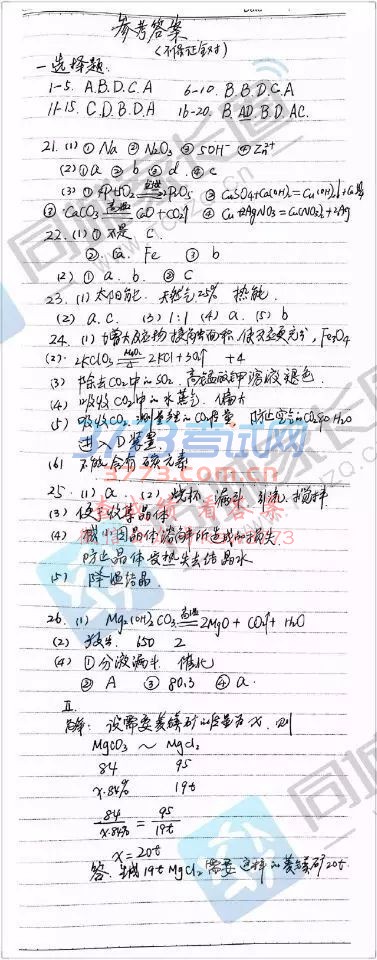 参考答案
(不保证全对)
一选择题.
1-5. A.B.D.C.A 6-10. B.B.D.C.A
11-15. C.D.B.D.A 16-20. B.AD.B.D.AC.
21. (1) ① Na ② N2O3 ③ 5OH- ④ Zn2+
(2) ① a ② b ③ d ④ c
③ CaCO3 高温 CaO+CO2↑ ④ Cu+2AgNO3=Cu(NO3)2+2Ag
22. (1) ① 不是 C.
② Ca. Fe ③ b
(2) ① a. b. ② C
23. (1) 太阳能. 天然气 25% 热能.
(2) a. c. (3) 1:1 (4) a. (5) b
24. (1) 增大反应物接触面积, 使反应更充分, Fe3O4
(2). 2KClO3 MnO2 △ 2KCl+3O2↑ +4
(3) 除去CO2中的SO2. 高锰酸钾溶液褪色.
(4) 吸收CO2中的水蒸气. 偏大
(5) 吸收CO2, 测量生成的CO2质量 防止空气的CO2和H2O
进入D装置.
(6) 不能含有碳元素
3773考试网
3773.com.cn
25. (1) a (2) 烧杯. 漏斗. 引流. 搅拌
(3) 便于收集晶体
(4) 减小因晶体溶解所造成的损失.
防止晶体受热失去结晶水
(5) 降温结晶
26. (1) Mg2(OH)2CO3 高温 2MgO + CO2↑ + H2O
(2) 650 2
(4) ① 分液漏斗. 催化
② A ③ 80.3 ④ a.
Ⅱ.
解: 设需要菱镁矿的质量为x, 则
MgCO3 ~ MgCl2
84 95
x·84% 19t
84/x·84% = 95/19t
x=20t
答: 生成19t MgCl2 需要这样的菱镁矿20t.
同城家长圈